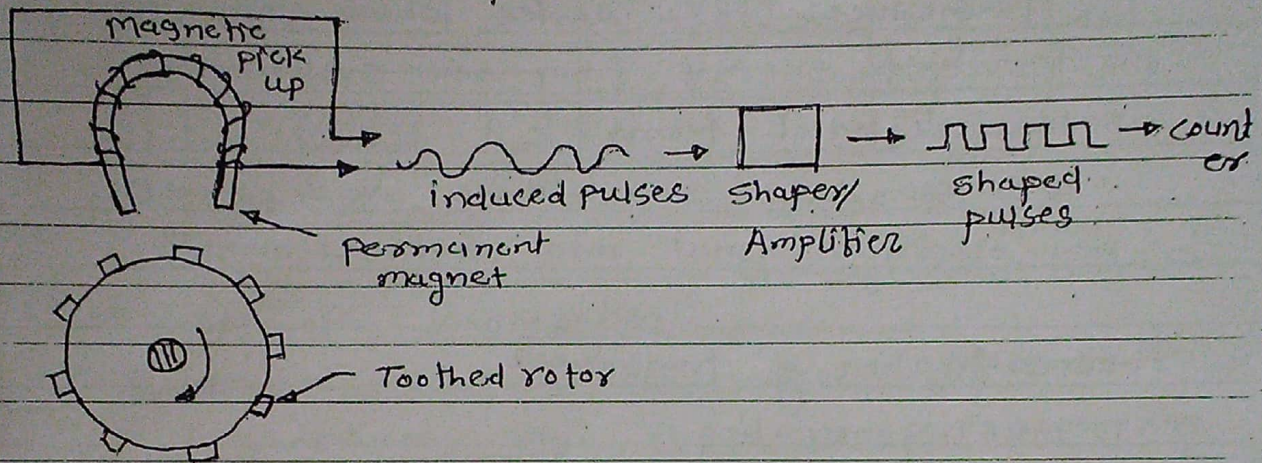 Magnetic
pick
up
induced pulses
shaper/
Amplifier
shaped
pulses
count
er
permanent
magnet
Toothed rotor